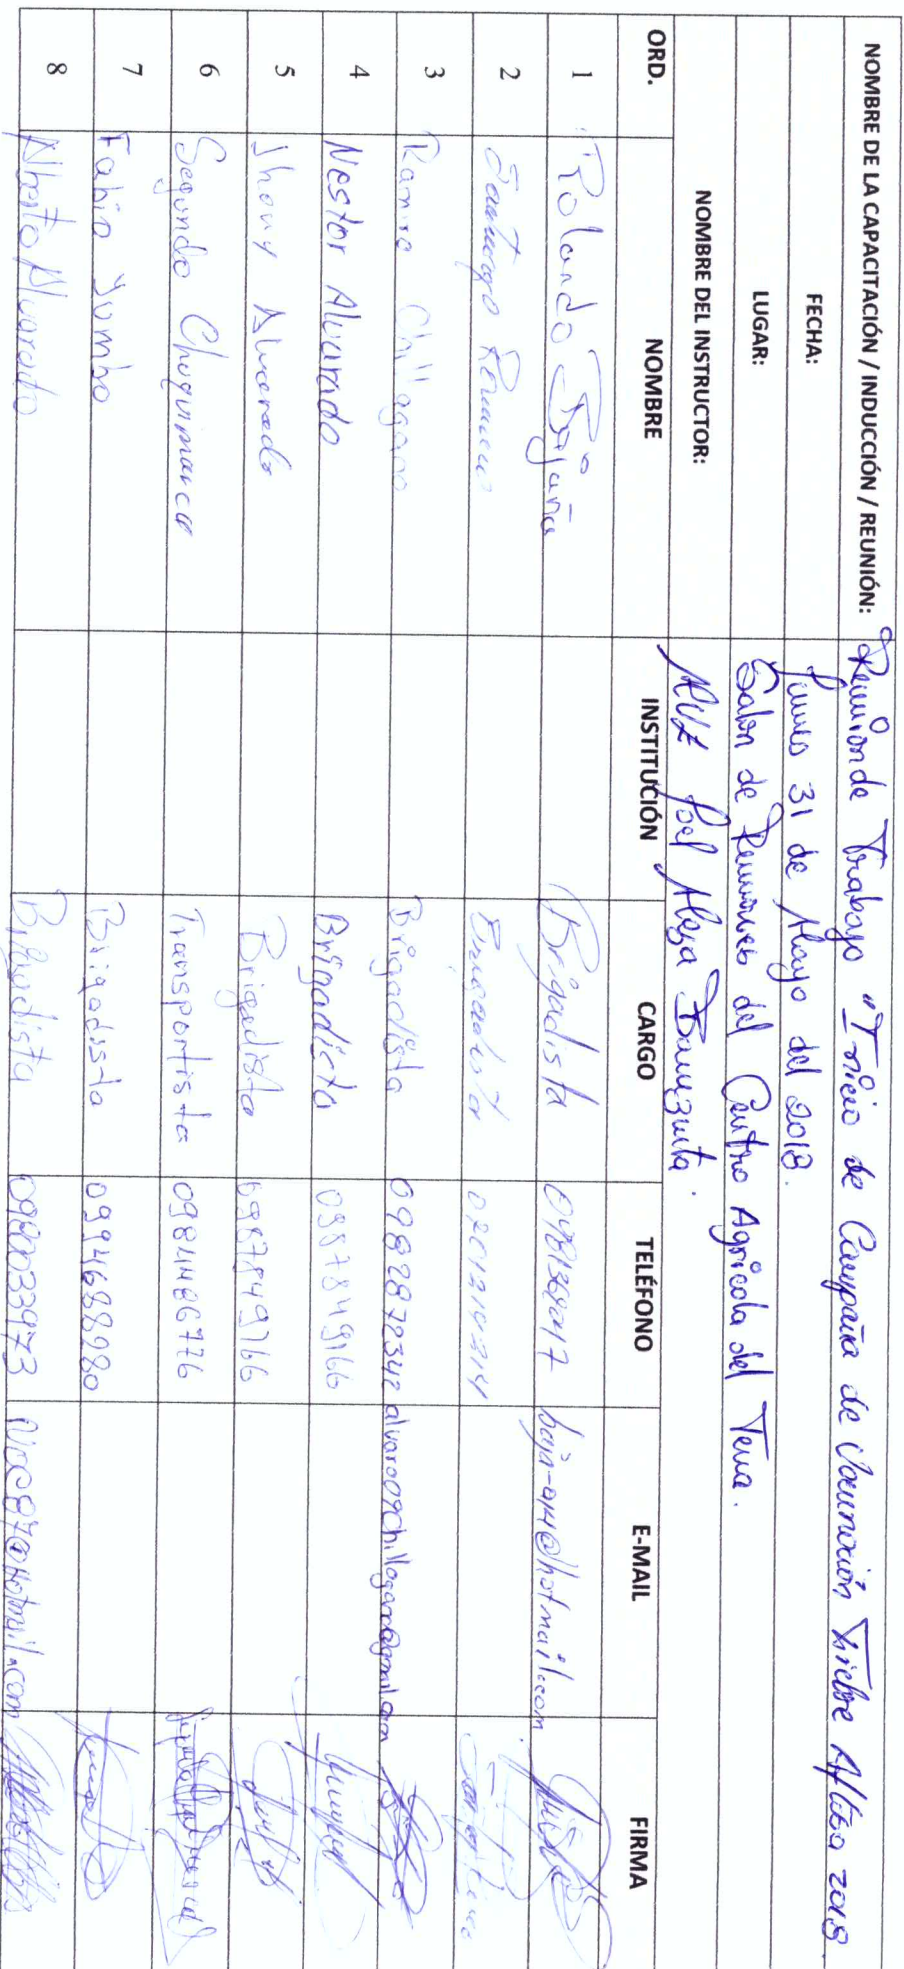 NOMBRE DE LA CAPACITACIÓN / INDUCCIÓN / REUNIÓN: Reunion de Trabajo "Inicio de Campaña de Vacunación Fiebre Aftosa 2018.
FECHA: Lunes 31 de Mayo del 2018.
LUGAR: Salon de Reuniones del Centro Agricola del Tena.
NOMBRE DEL INSTRUCTOR: MVZ Joel Meza
ORD. NOMBRE INSTITUCIÓN CARGO TELÉFONO E-MAIL FIRMA
1 Rolando Bajaña Brigadista baja-art@hotmail.com
2 Santiago
3 Ramiro Chillagano Brigadista 0982872342
4 Nestor Alvarado Brigadista 0987849166
5 Jhony Alvarado Brigadista 0987849166
6 Segundo Chuquimarca Transportista 0984486776
7 Fabio Jumbo Brigadista 0994688280
8 Alberto Alvarado Brigadista 0980033973